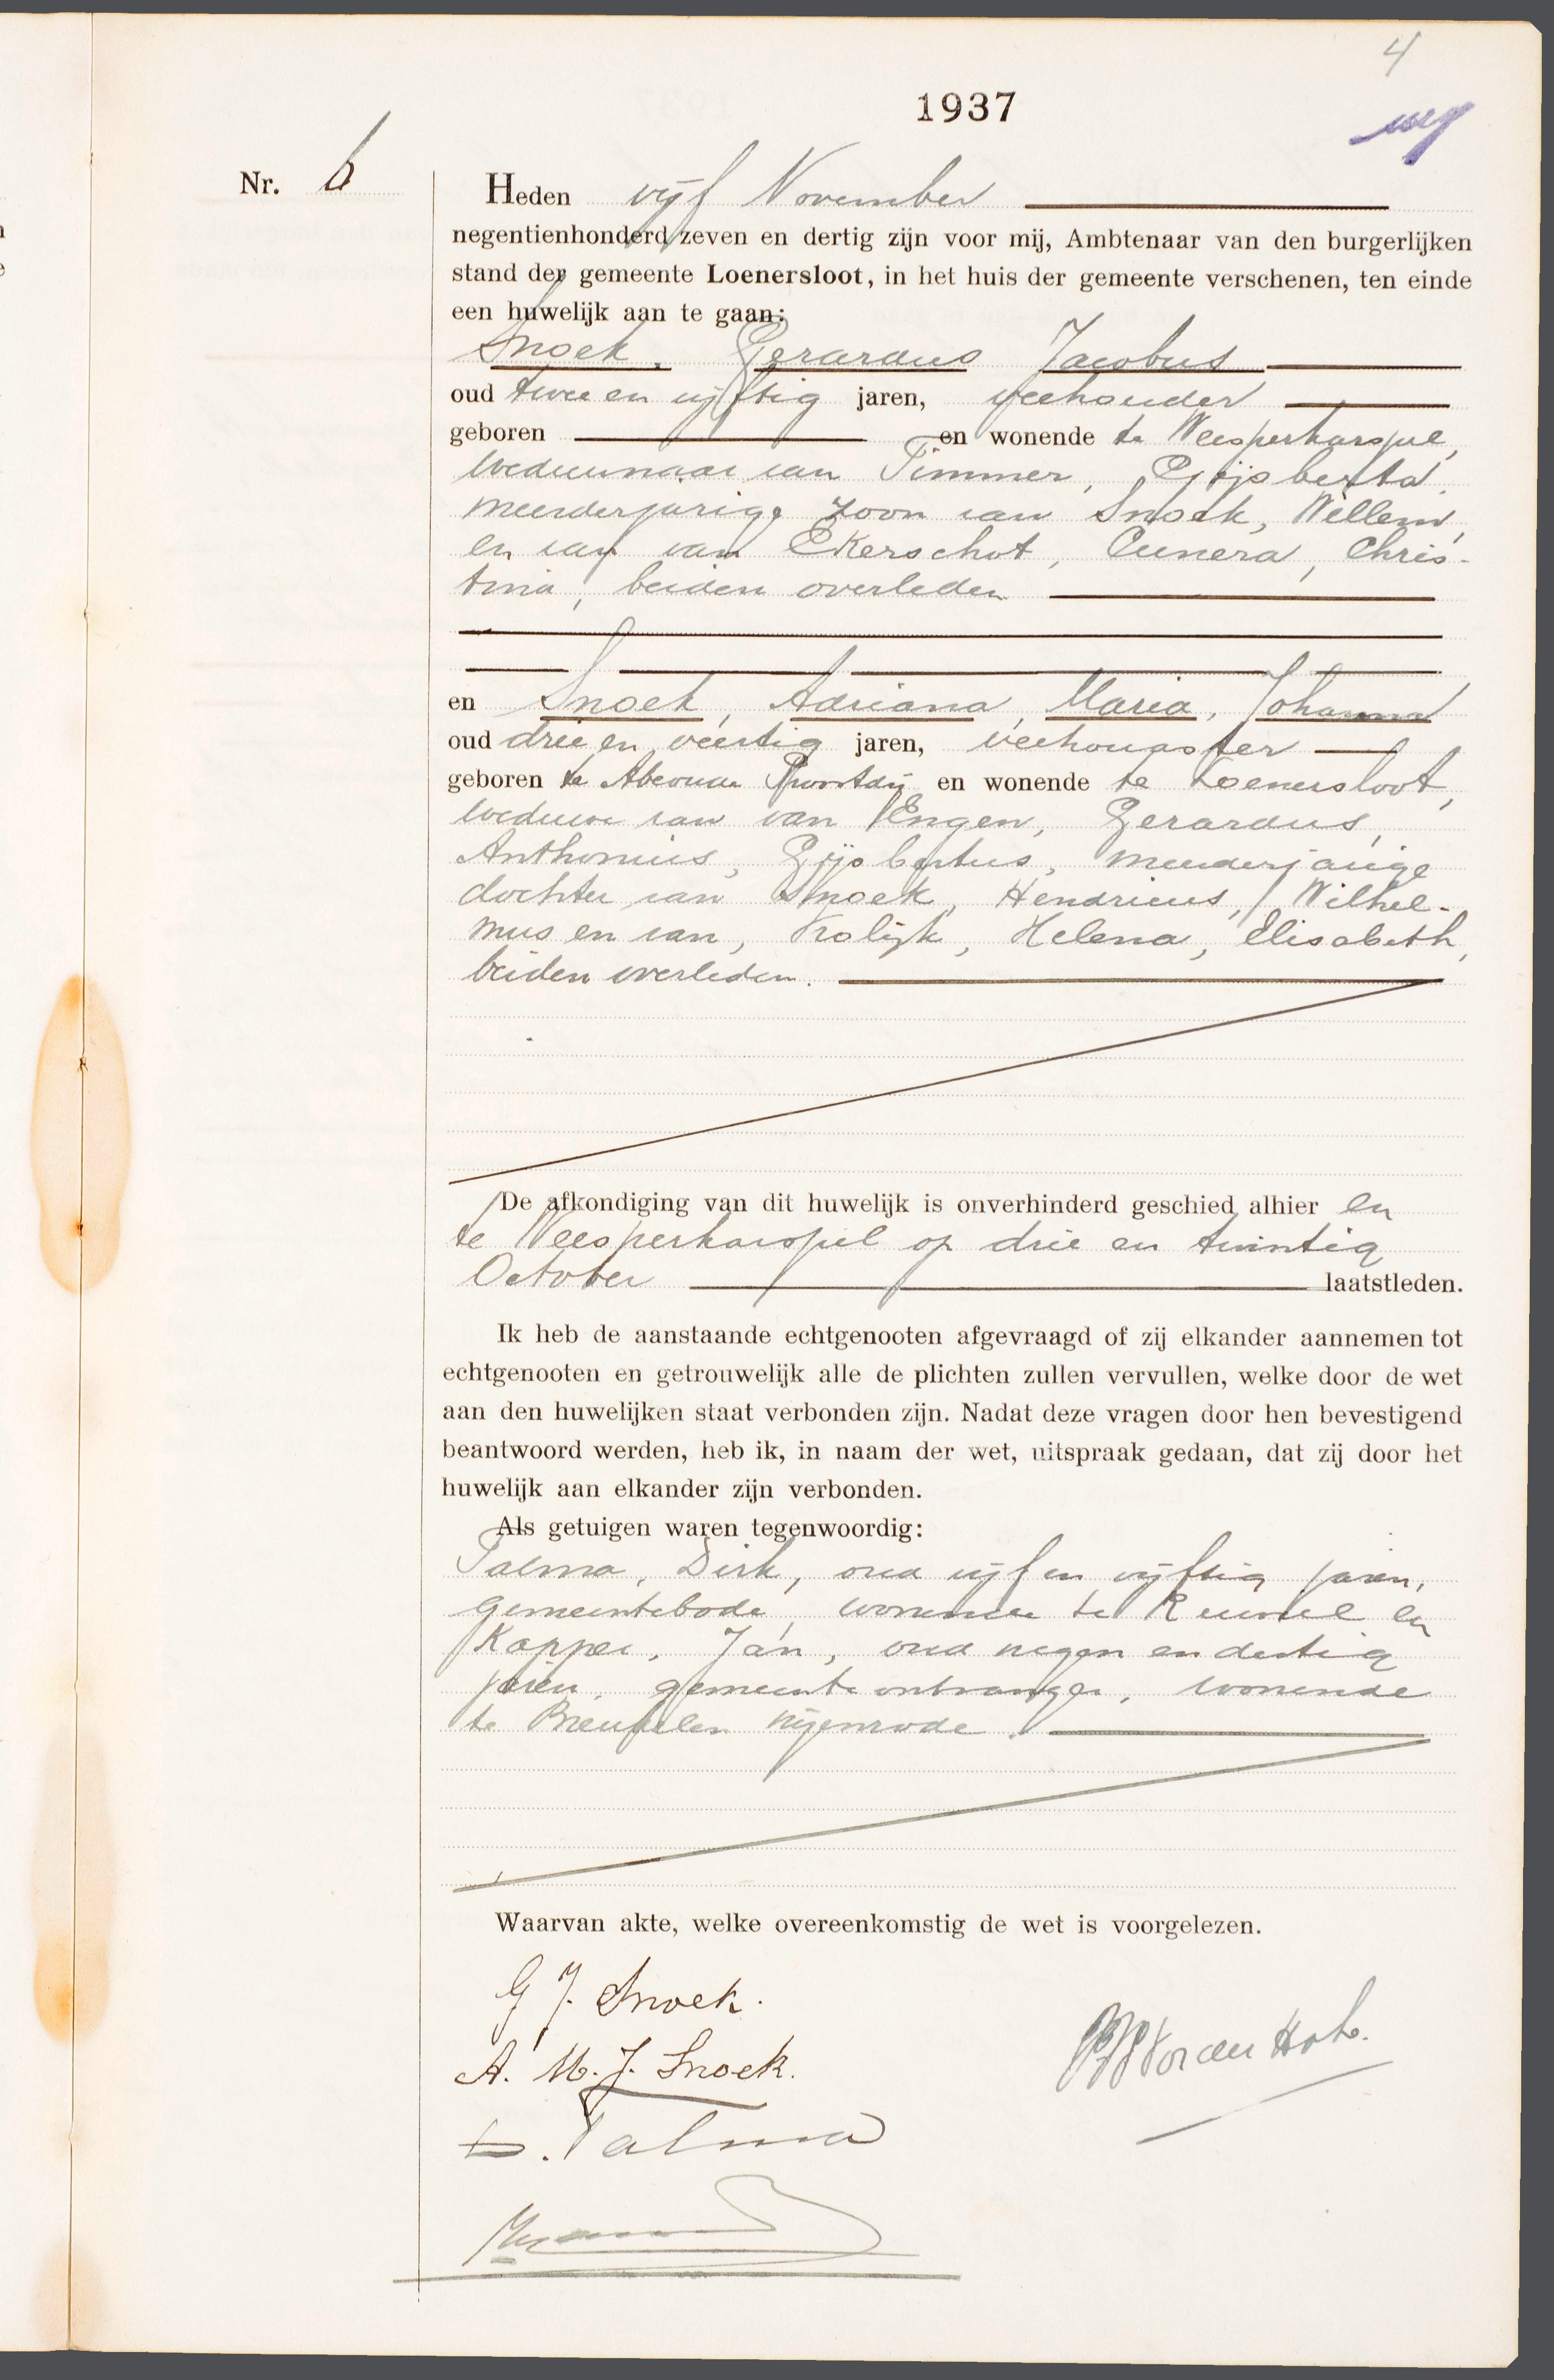 4
1937
weg
Nr. 6
Heden vijf November
negentienhonderd zeven en dertig zijn voor mij, Ambtenaar van den burgerlijken
stand der gemeente Loenersloot, in het huis der gemeente verschenen, ten einde
een huwelijk aan te gaan:
Snoek, Gerardus Jacobus
oud twee en vijftig jaren, veehouder
geboren en wonende te Weesperkarspel,
weduwnaar van Timmer, Gijsberta,
meerderjarige zoon van Snoek, Willem,
en van van Ekerschot, Cunera, Chris-
tina, beiden overleden
en Snoek, Adriana, Maria, Johanna
oud drie en veertig jaren, veehoudster
geboren te Abcoude Proostdij en wonende te Loenersloot,
weduwe van van Engen, Gerardus,
Anthonius, Gijsbertus, meerderjarige
dochter van Snoek, Hendricus, Wilhel-
mus en van, Krolijk, Helena, Elisabeth,
beiden overleden.
De afkondiging van dit huwelijk is onverhinderd geschied alhier en
te Weesperkarspel op drie en twintig
October laatstleden.
Ik heb de aanstaande echtgenooten afgevraagd of zij elkander aannemen tot
echtgenooten en getrouwelijk alle de plichten zullen vervullen, welke door de wet
aan den huwelijken staat verbonden zijn. Nadat deze vragen door hen bevestigend
beantwoord werden, heb ik, in naam der wet, uitspraak gedaan, dat zij door het
huwelijk aan elkander zijn verbonden.
Als getuigen waren tegenwoordig:
Talma, Dirk, oud vijf en vijftig jaren,
gemeentebode, wonende te Ruwiel en
Kapper, Jan, oud negen en dertig
jaren, gemeente ontvanger, wonende
te Breukelen Nijenrode.
Waarvan akte, welke overeenkomstig de wet is voorgelezen.
G J. Snoek.
A. M. J. Snoek.
D. Talma